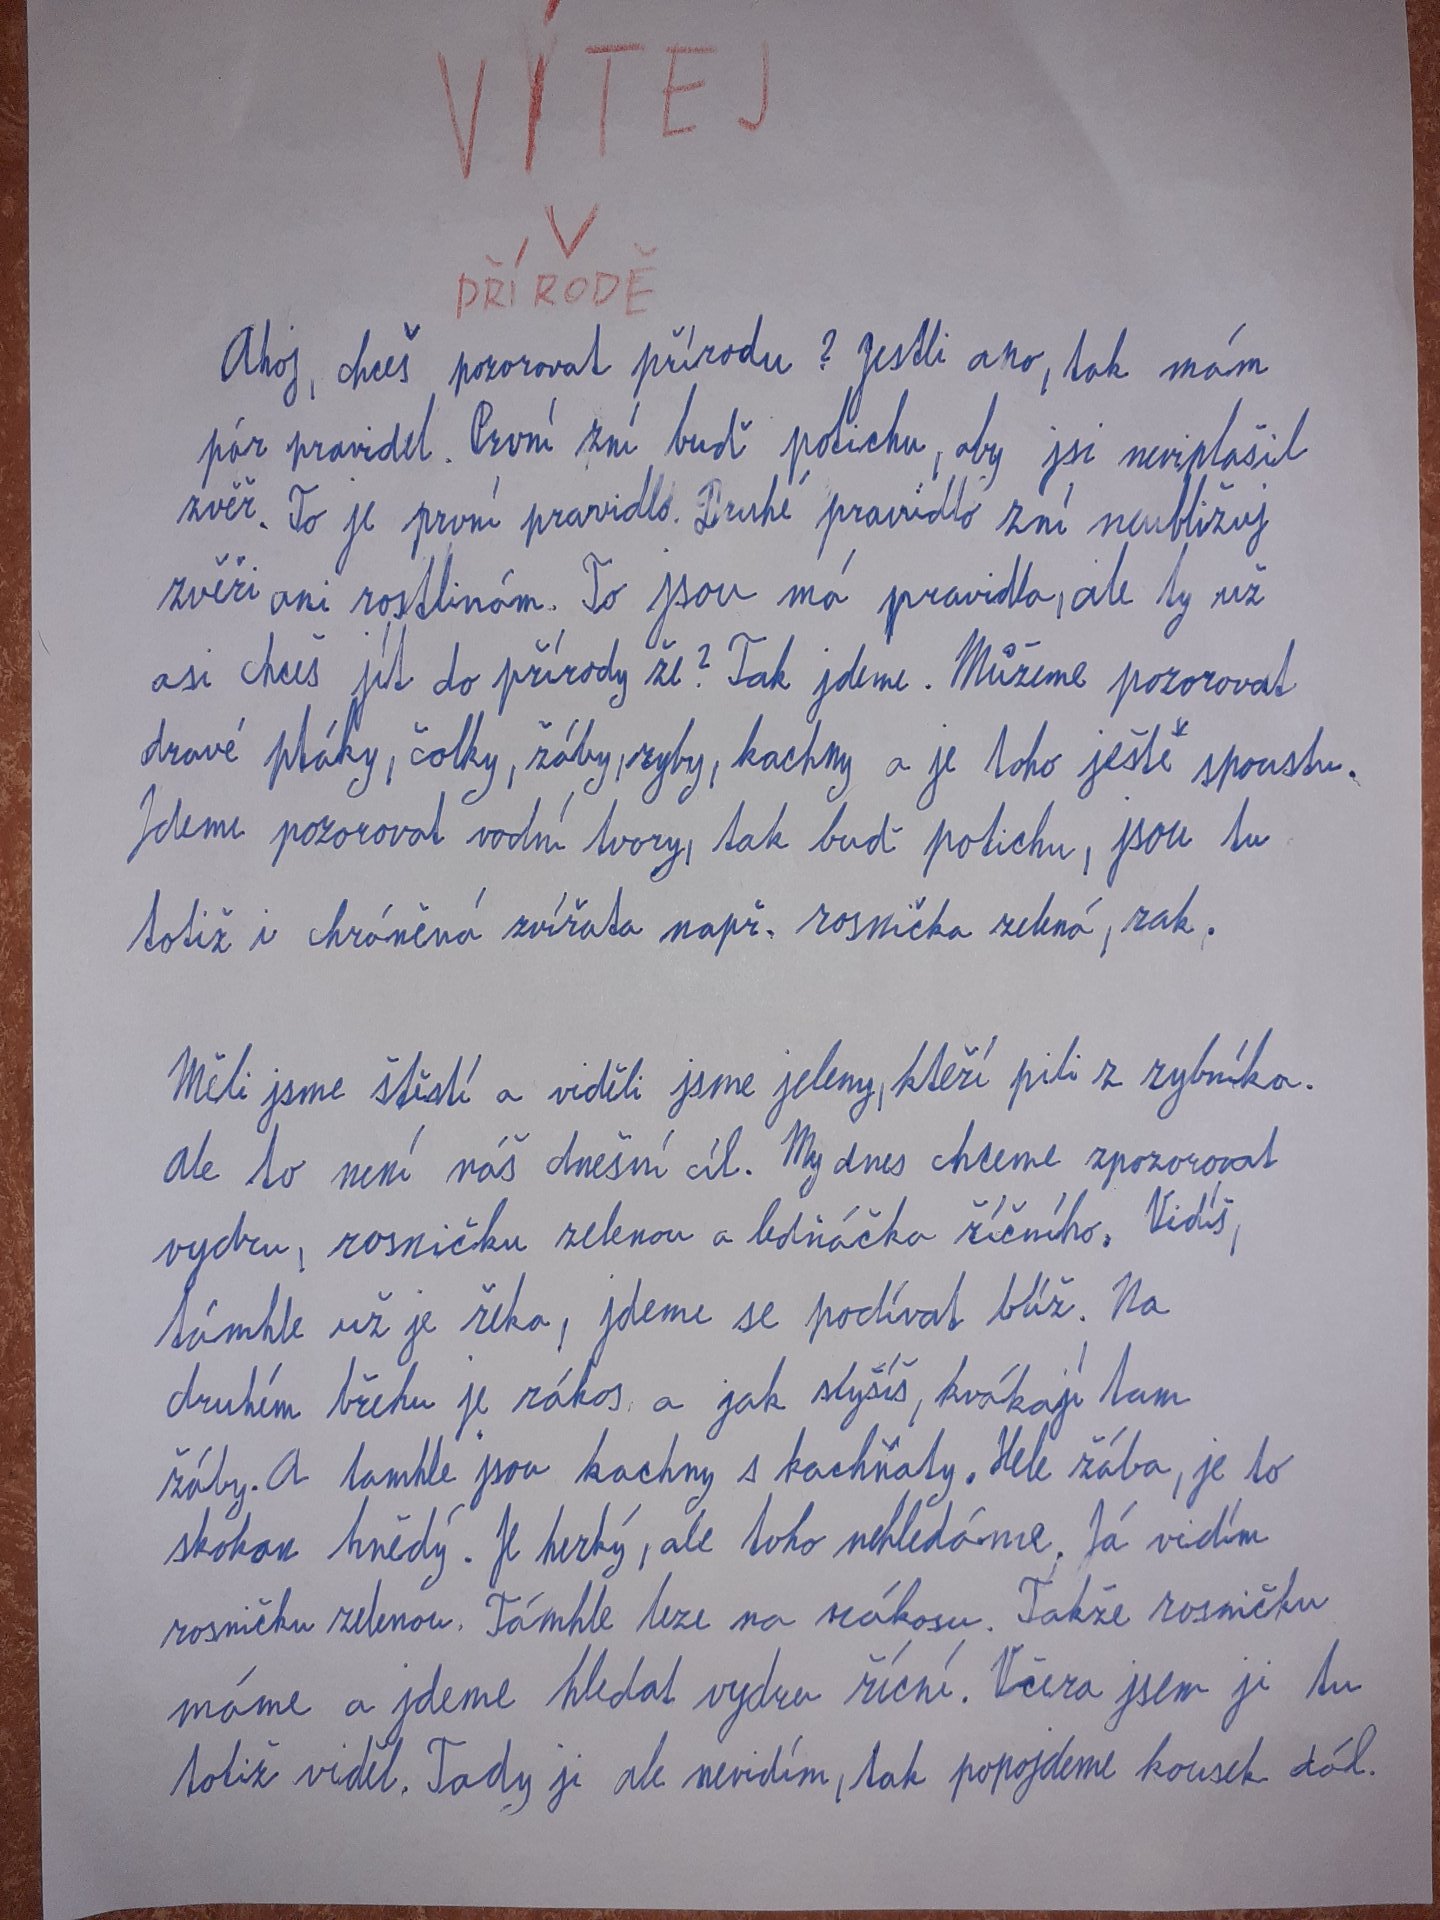 VÍTEJ
V
PŘÍRODĚ
Ahoj, chceš pozorovat přírodu? Jestli ano, tak mám
pár pravidel. První zní buď potichu, aby jsi neviplašil
zvěř. To je první pravidlo. Druhé pravidlo zní neubližuj
zvěři ani rostlinám. To jsou má pravidla, ale ty už
asi chceš jít do přírody že? Tak jdeme. Můžeme pozorovat
dravé ptáky, čolky, žáby, ryby, kachny a je toho ještě spoustu.
Jdeme pozorovat vodní tvory, tak buď potichu, jsou tu
totiž i chráněná zvířata např. rosnička zelená, rak.
Měli jsme štěstí a viděli jsme jeleny, kteří pili z rybníka.
Ale to není náš dnešní cíl. My dnes chceme zpozorovat
vydru, rosničku zelenou a ledňáčka říčního. Vidíš,
támhle už je řeka, jdeme se podívat blíž. Na
druhém břehu je rákos a jak slyšíš, kvákají tam
žáby. A tamhle jsou kachny s kachňaty. Hele žába, je to
skokan hnědý. Je hezký, ale toho nehledáme. Já vidím
rosničku zelenou. Támhle leze na rákosu. Takže rosničku
máme a jdeme hledat vydru říční. Včera jsem ji tu
totiž viděl. Tady ji ale nevidím, tak popojdeme kousek dál.